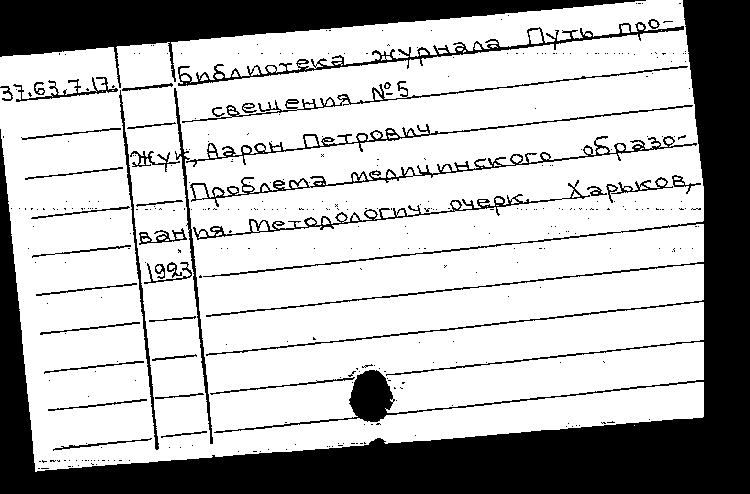 Библиотека журнала Путь про-
37.63.7.17.
свещения. №5.
Жук, Аарон Петрович.
Проблема медицинского образо-
вания. Методологич. очерк. Харьков,
1923.